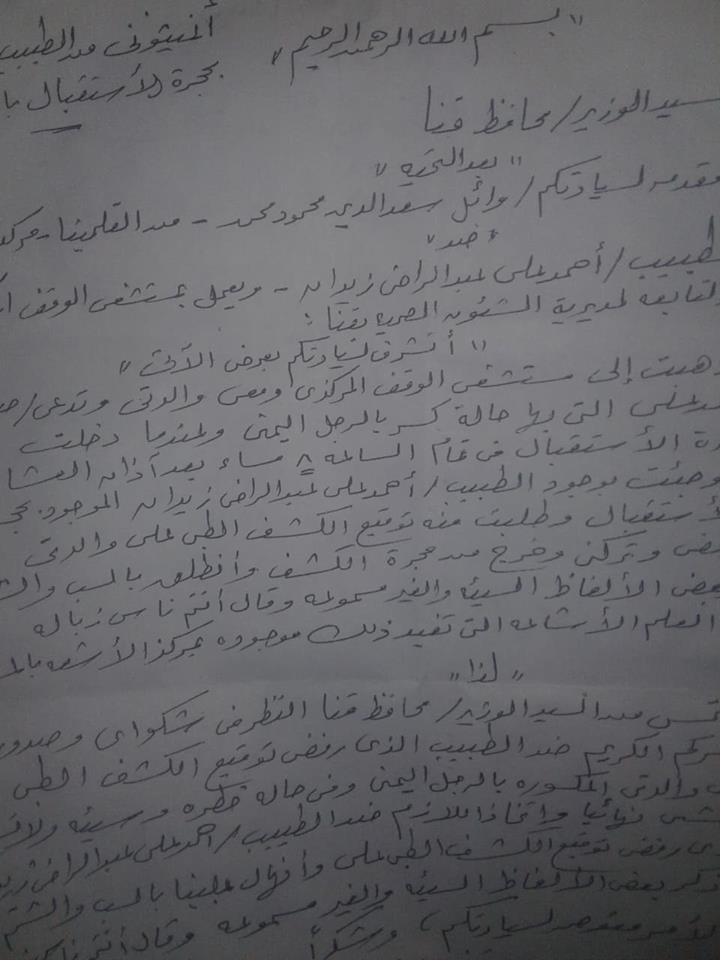 أنقيثونى من الطبيب
بحجرة الأستقبال با
" بسم الله الرحمن الرحيم "
سيد الوزير / محافظ قنا
" بعد التحيه "
مقدمه لسيادتكم / وائل سعد الدين محمود محمد - من القلمينا - مركز
" ضد "
لطبيب / أحمد على عبد الراضى زيدان - ويعمل بمستشفى الوقف
لتابعه لمديرية الشئون الصحيه بقنا :
" أتشرف لسيادتكم بعرض الآتى "
ذهبت إلى مستشفى الوقف المركزى ومعى والدتى وتدعى /
التى بها حالة كسر بالرجل اليمنى وعندما دخلت
رة الأستقبال فى تمام الساعه ٨ مساء بعد آذان العشا
وجئت بوجود الطبيب / أحمد على عبد الراضى زيدان الموجود بحج
لأستقبال وطلبت منه توقيع الكشف الطبى على والدتى
فض وتركنى وخرج من حجرة الكشف وأنطلق بالسب والش
بعض الألفاظ السيئه والغير مسموعه وقال أنتم ناس زباله
العلم الأشاعه التى تفيد ذلك موجوده بمركز الأشعه بالم
" لذا "
من السيد الوزير / محافظ قنا النظر فى شكواى وصدور
مركم الكريم ضد الطبيب الذى رفض توقيع الكشف الطبى
والدتى المكسوره بالرجل اليمنى وفى حاله خطره وسيئه
نهائيا واتخاذ اللازم ضد الطبيب / أحمد على عبد الراضى زيد
ى رفض توقيع الكشف الطبى على وأنهال علينا بالسب والشتم
ذكر بعض الألفاظ السيئه والغير مسموعه وقال أنتم ناس
لأمر لسيادتكم ، وشكراً